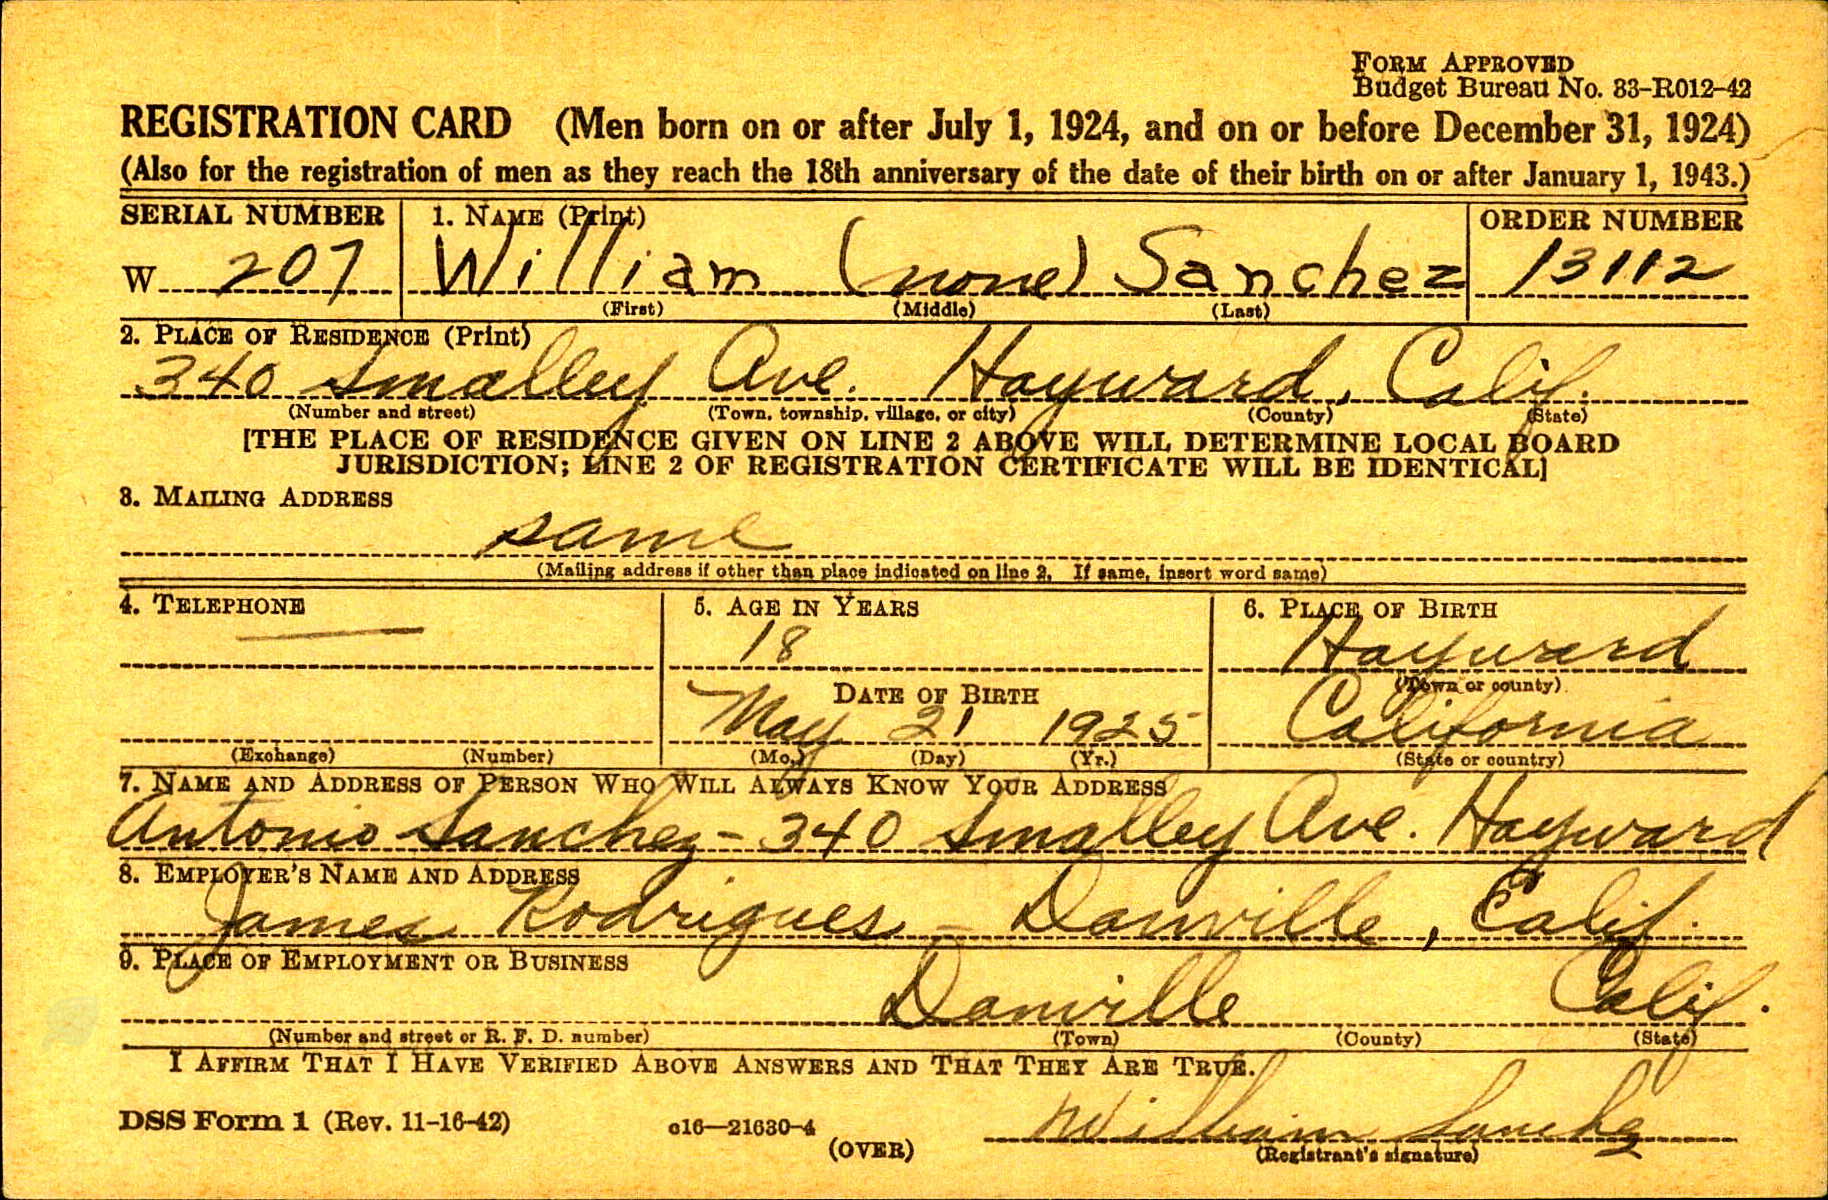 FORM APPROVED
Budget Bureau No. 33-R012-42
REGISTRATION CARD (Men born on or after July 1, 1924, and on or before December 31, 1924)
(Also for the registration of men as they reach the 18th anniversary of the date of their birth on or after January 1, 1943.)
SERIAL NUMBER 1. NAME (Print) ORDER NUMBER
W 207 William (none) Sanchez 13112
(First) (Middle) (Last)
2. PLACE OF RESIDENCE (Print)
340 Smalley Ave. Hayward, Calif.
(Number and street) (Town, township, village, or city) (County) (State)
[THE PLACE OF RESIDENCE GIVEN ON LINE 2 ABOVE WILL DETERMINE LOCAL BOARD
JURISDICTION; LINE 2 OF REGISTRATION CERTIFICATE WILL BE IDENTICAL]
3. MAILING ADDRESS
same
(Mailing address if other than place indicated on line 2. If same, insert word same)
4. TELEPHONE 5. AGE IN YEARS 6. PLACE OF BIRTH
18 Hayward
DATE OF BIRTH (Town or county)
May 21 1925 California
(Exchange) (Number) (Mo.) (Day) (Yr.) (State or country)
7. NAME AND ADDRESS OF PERSON WHO WILL ALWAYS KNOW YOUR ADDRESS
Antonio Sanchez - 340 Smalley Ave. Hayward
8. EMPLOYER'S NAME AND ADDRESS
James Rodrigues - Danville, Calif.
9. PLACE OF EMPLOYMENT OR BUSINESS
Danville Calif.
(Number and street or R. F. D. number) (Town) (County) (State)
I AFFIRM THAT I HAVE VERIFIED ABOVE ANSWERS AND THAT THEY ARE TRUE.
DSS Form 1 (Rev. 11-16-42) c16—21630-4 William Sanchez
(OVER) (Registrant's signature)